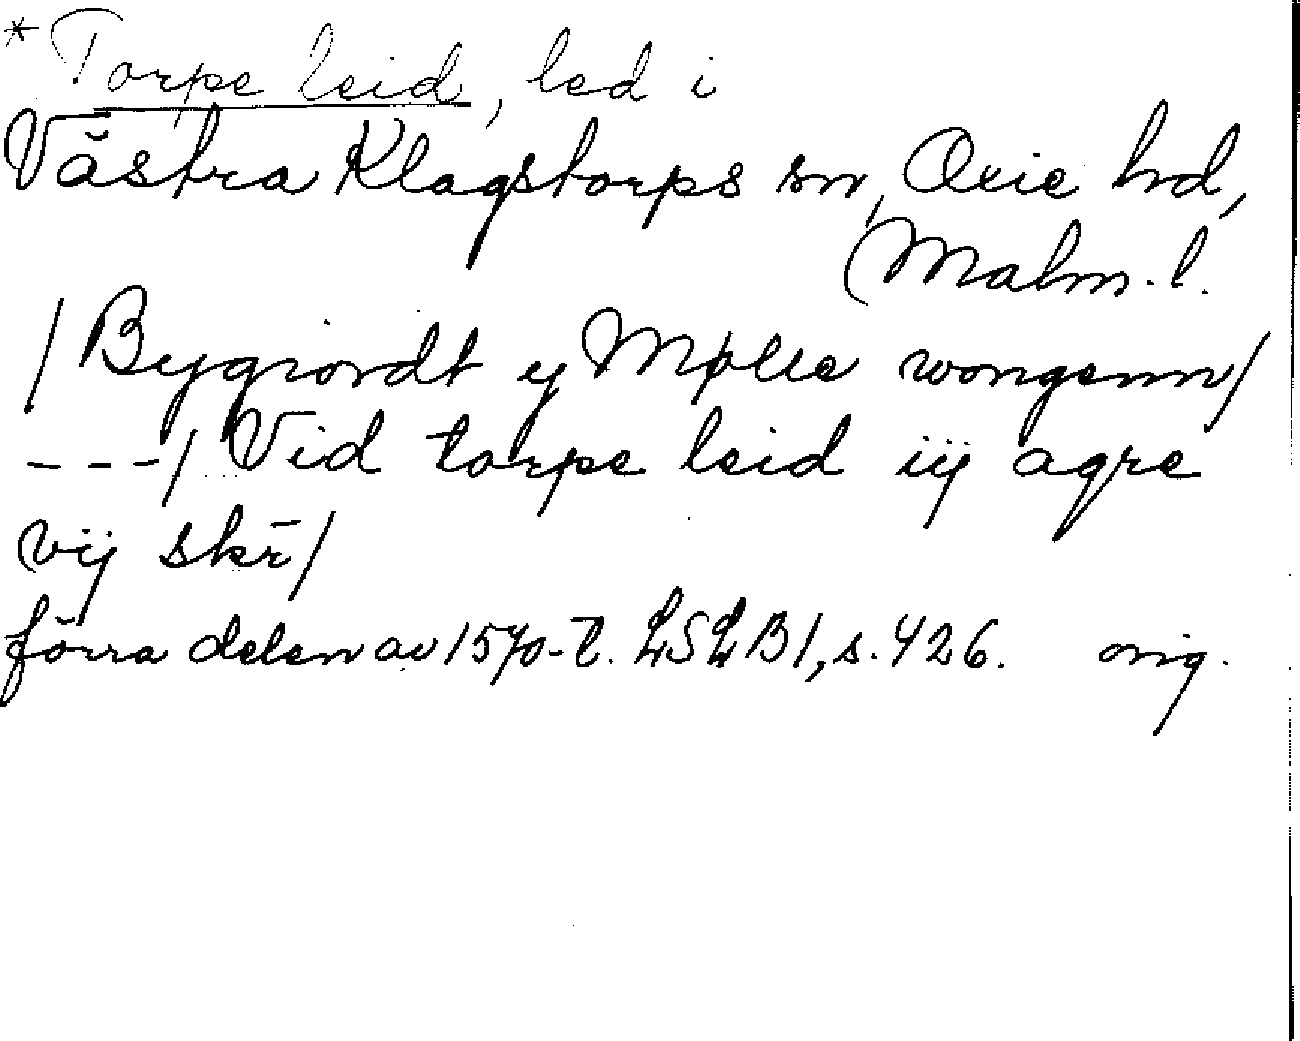 * Torpe leid, led i
Västra Klagstorps sn, Oxie hd,
Malm. l.
/ Bygiordt y Mølle wongenn/
---/ Vid torpe leid iij agre
vij skr̄/
förra delen av 1570-t. LSLB1, s. 426. orig.